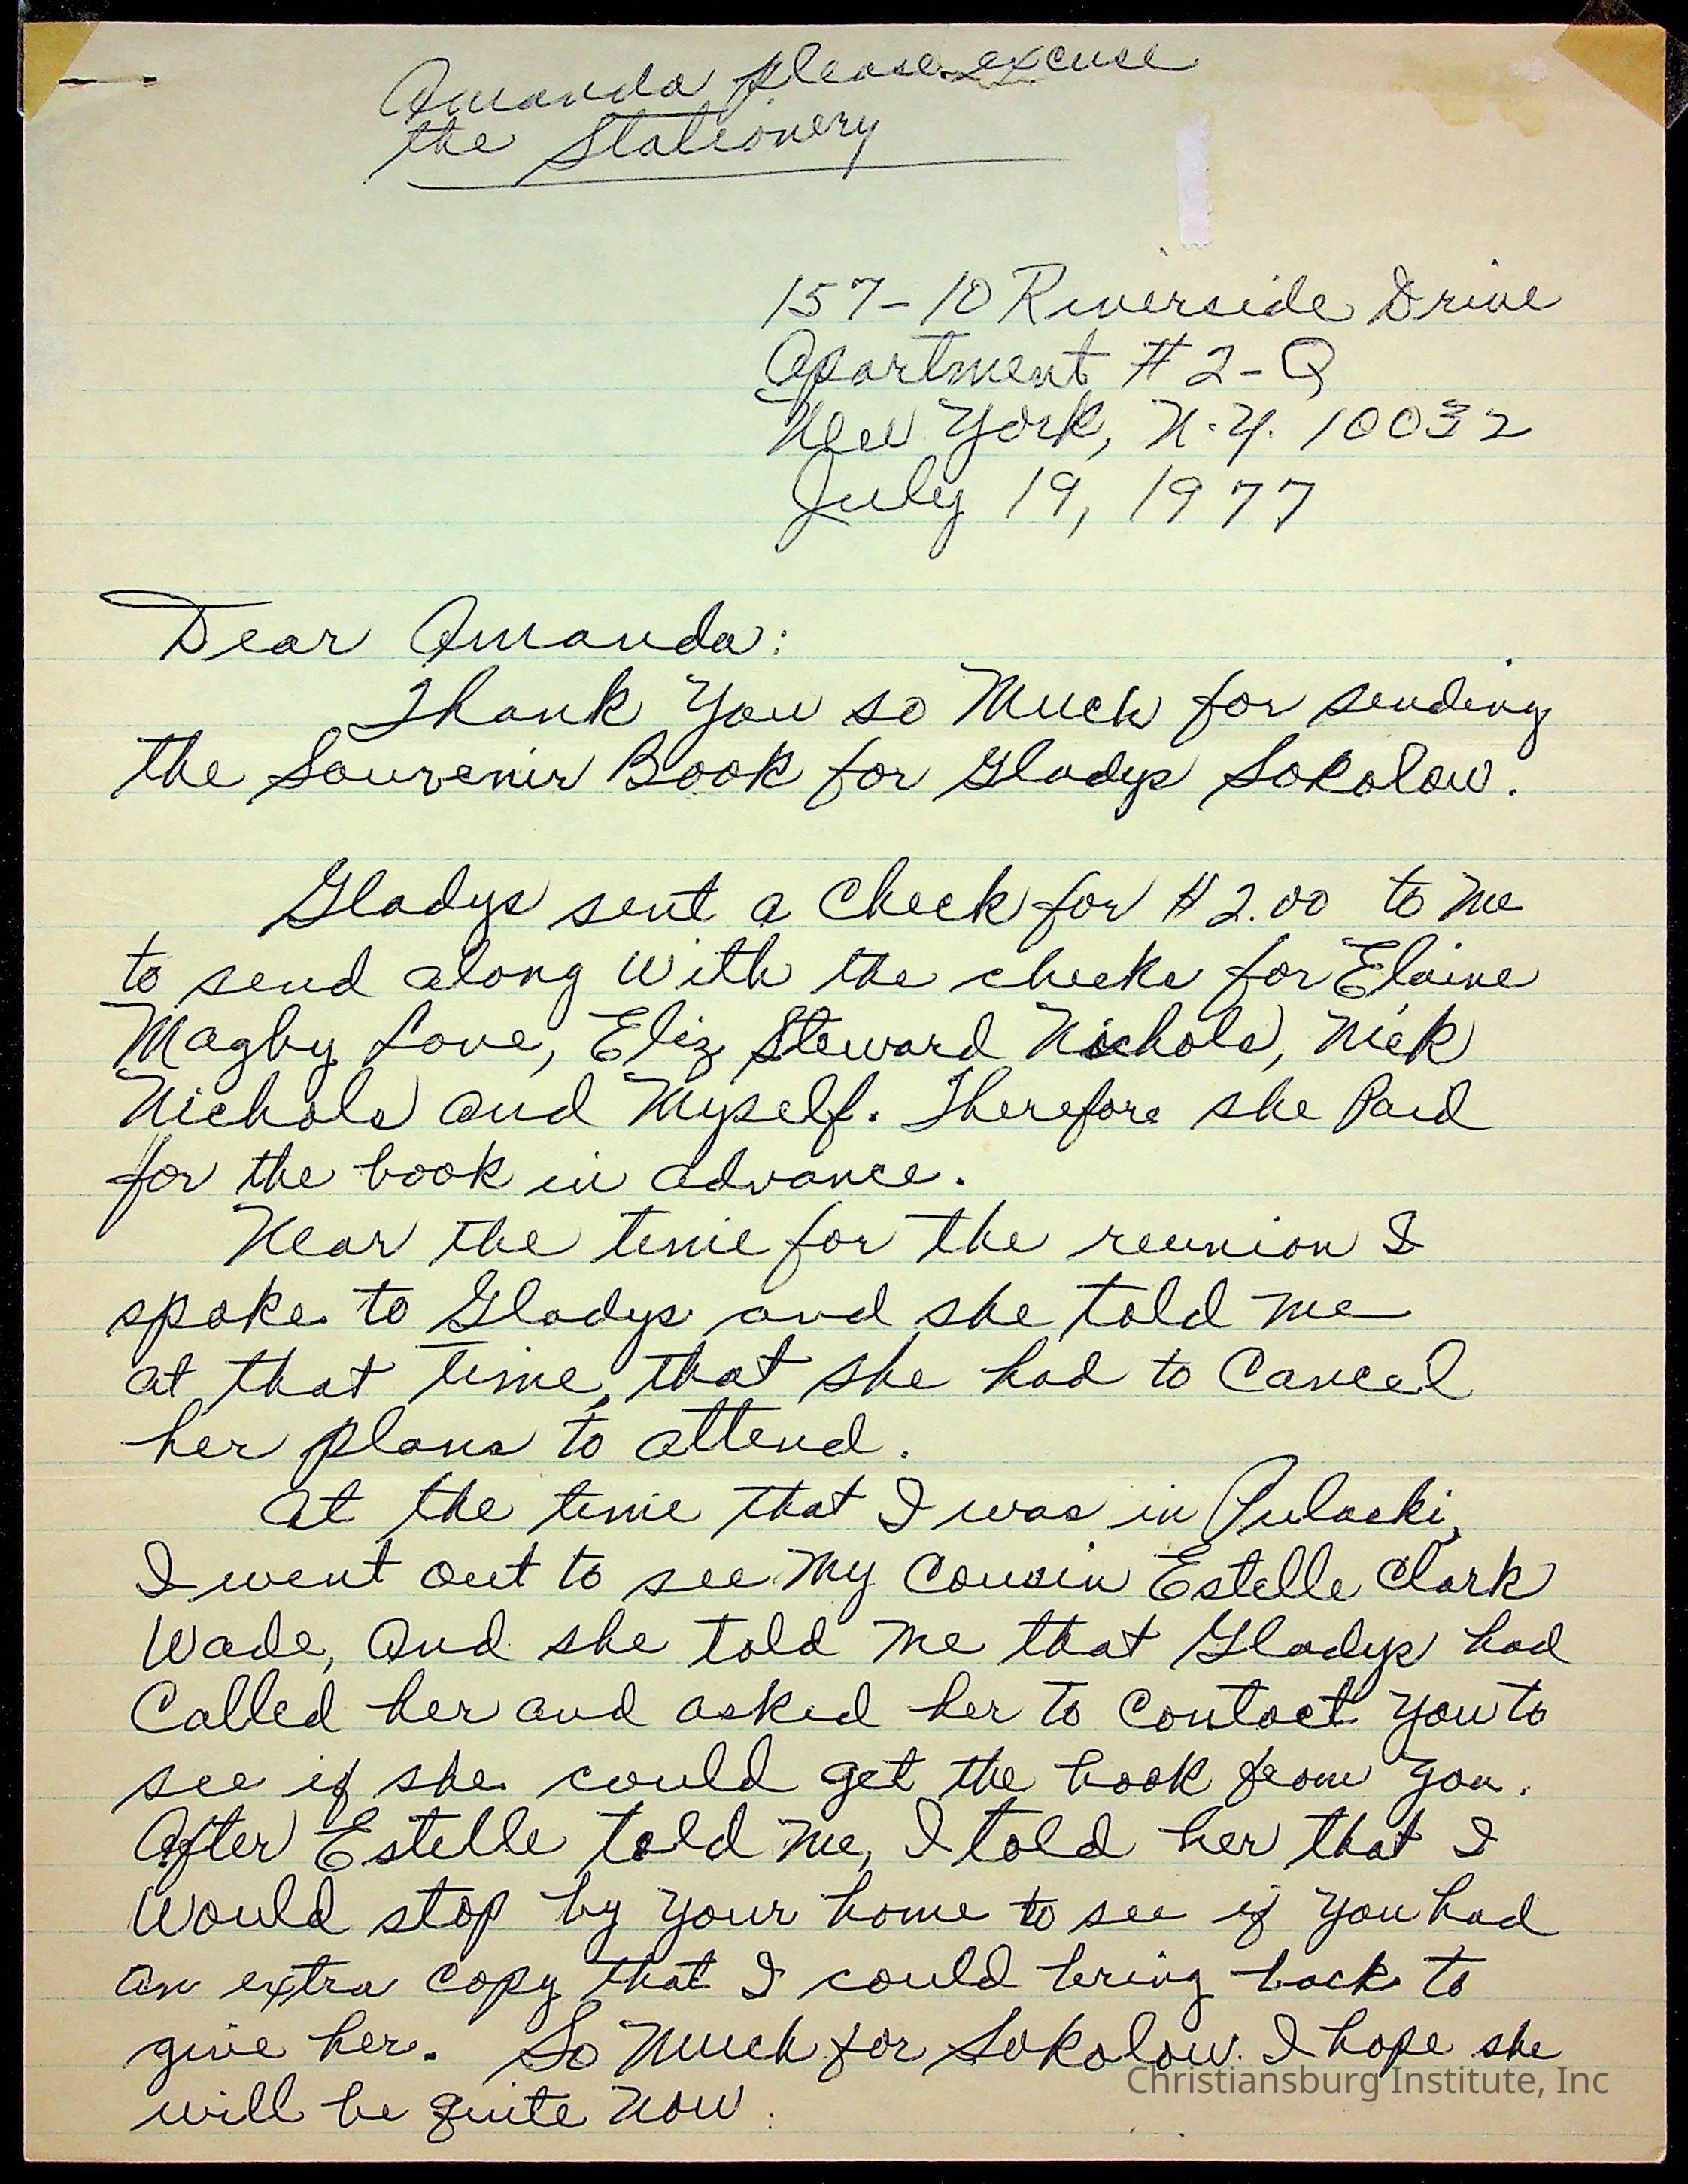 Amanda please excuse
the Stationery
157-10 Riverside Drive
Apartment # 2-Q
New York, N.Y. 10032
July 19, 1977
Dear Amanda:
Thank You so Much for sending
the Souvenir Book for Gladys Sokolow.
Gladys sent a Check for $2.00 to me
to send along With the checks for Elaine
Magby Love, Eliz Steward Nichols, Nick
Nichols and Myself. Therefore she Paid
for the book in advance.
Near the time for the reunion I
spoke to Gladys and she told me
at that time, that she had to Cancel
her plans to attend.
At the time that I was in Pulaski,
I went out to see My Cousin Estelle Clark
Wade, and she told me that Gladys had
Called her and asked her to Contact You to
see if she could get the book from you.
After Estelle told me, I told her that I
Would stop by your home to see if you had
an extra copy that I could bring back to
give her. So Much for Sokolow. I hope she
will be quite now.
Christiansburg Institute, Inc